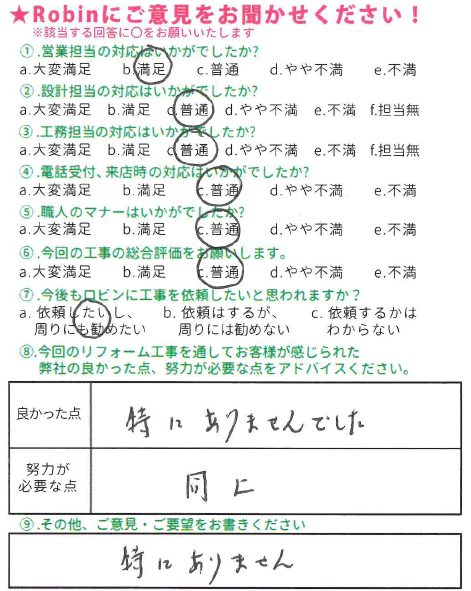 ★Robinにご意見をお聞かせください！
※該当する回答に〇をお願いいたします
①.営業担当の対応はいかがでしたか?
a.大変満足 b.満足 c.普通 d.やや不満 e.不満
②.設計担当の対応はいかがでしたか?
a.大変満足 b.満足 c.普通 d.やや不満 e.不満 f.担当無
③.工務担当の対応はいかがでしたか?
a.大変満足 b.満足 c.普通 d.やや不満 e.不満 f.担当無
④.電話受付、来店時の対応はいかがでしたか?
a.大変満足 b.満足 c.普通 d.やや不満 e.不満
⑤.職人のマナーはいかがでしたか?
a.大変満足 b.満足 c.普通 d.やや不満 e.不満
⑥.今回の工事の総合評価をお願いします。
a.大変満足 b.満足 c.普通 d.やや不満 e.不満
⑦.今後もロビンに工事を依頼したいと思われますか？
a. 依頼したいし、 b. 依頼はするが、 c. 依頼するかは
周りにも勧めたい 周りには勧めない わからない
⑧.今回のリフォーム工事を通してお客様が感じられた
弊社の良かった点、努力が必要な点をアドバイスください。
良かった点 特にありませんでした
努力が
必要な点 同上
⑨.その他、ご意見・ご要望をお書きください
特にありません